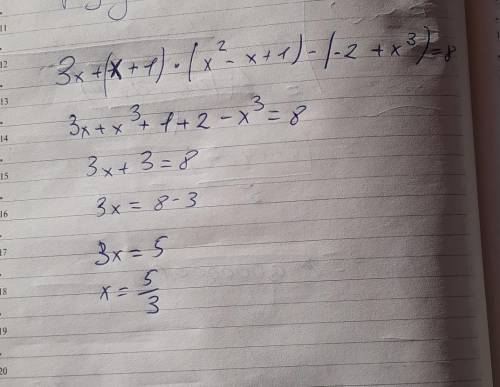 11
12 3x+(x+1)·(x²-x+1)-(-2+x³)=8
13
3x+x³+1+2-x³=8
14
3x+3=8
15
3x=8-3
16
3x=5
17
x=5/3
18
19
20